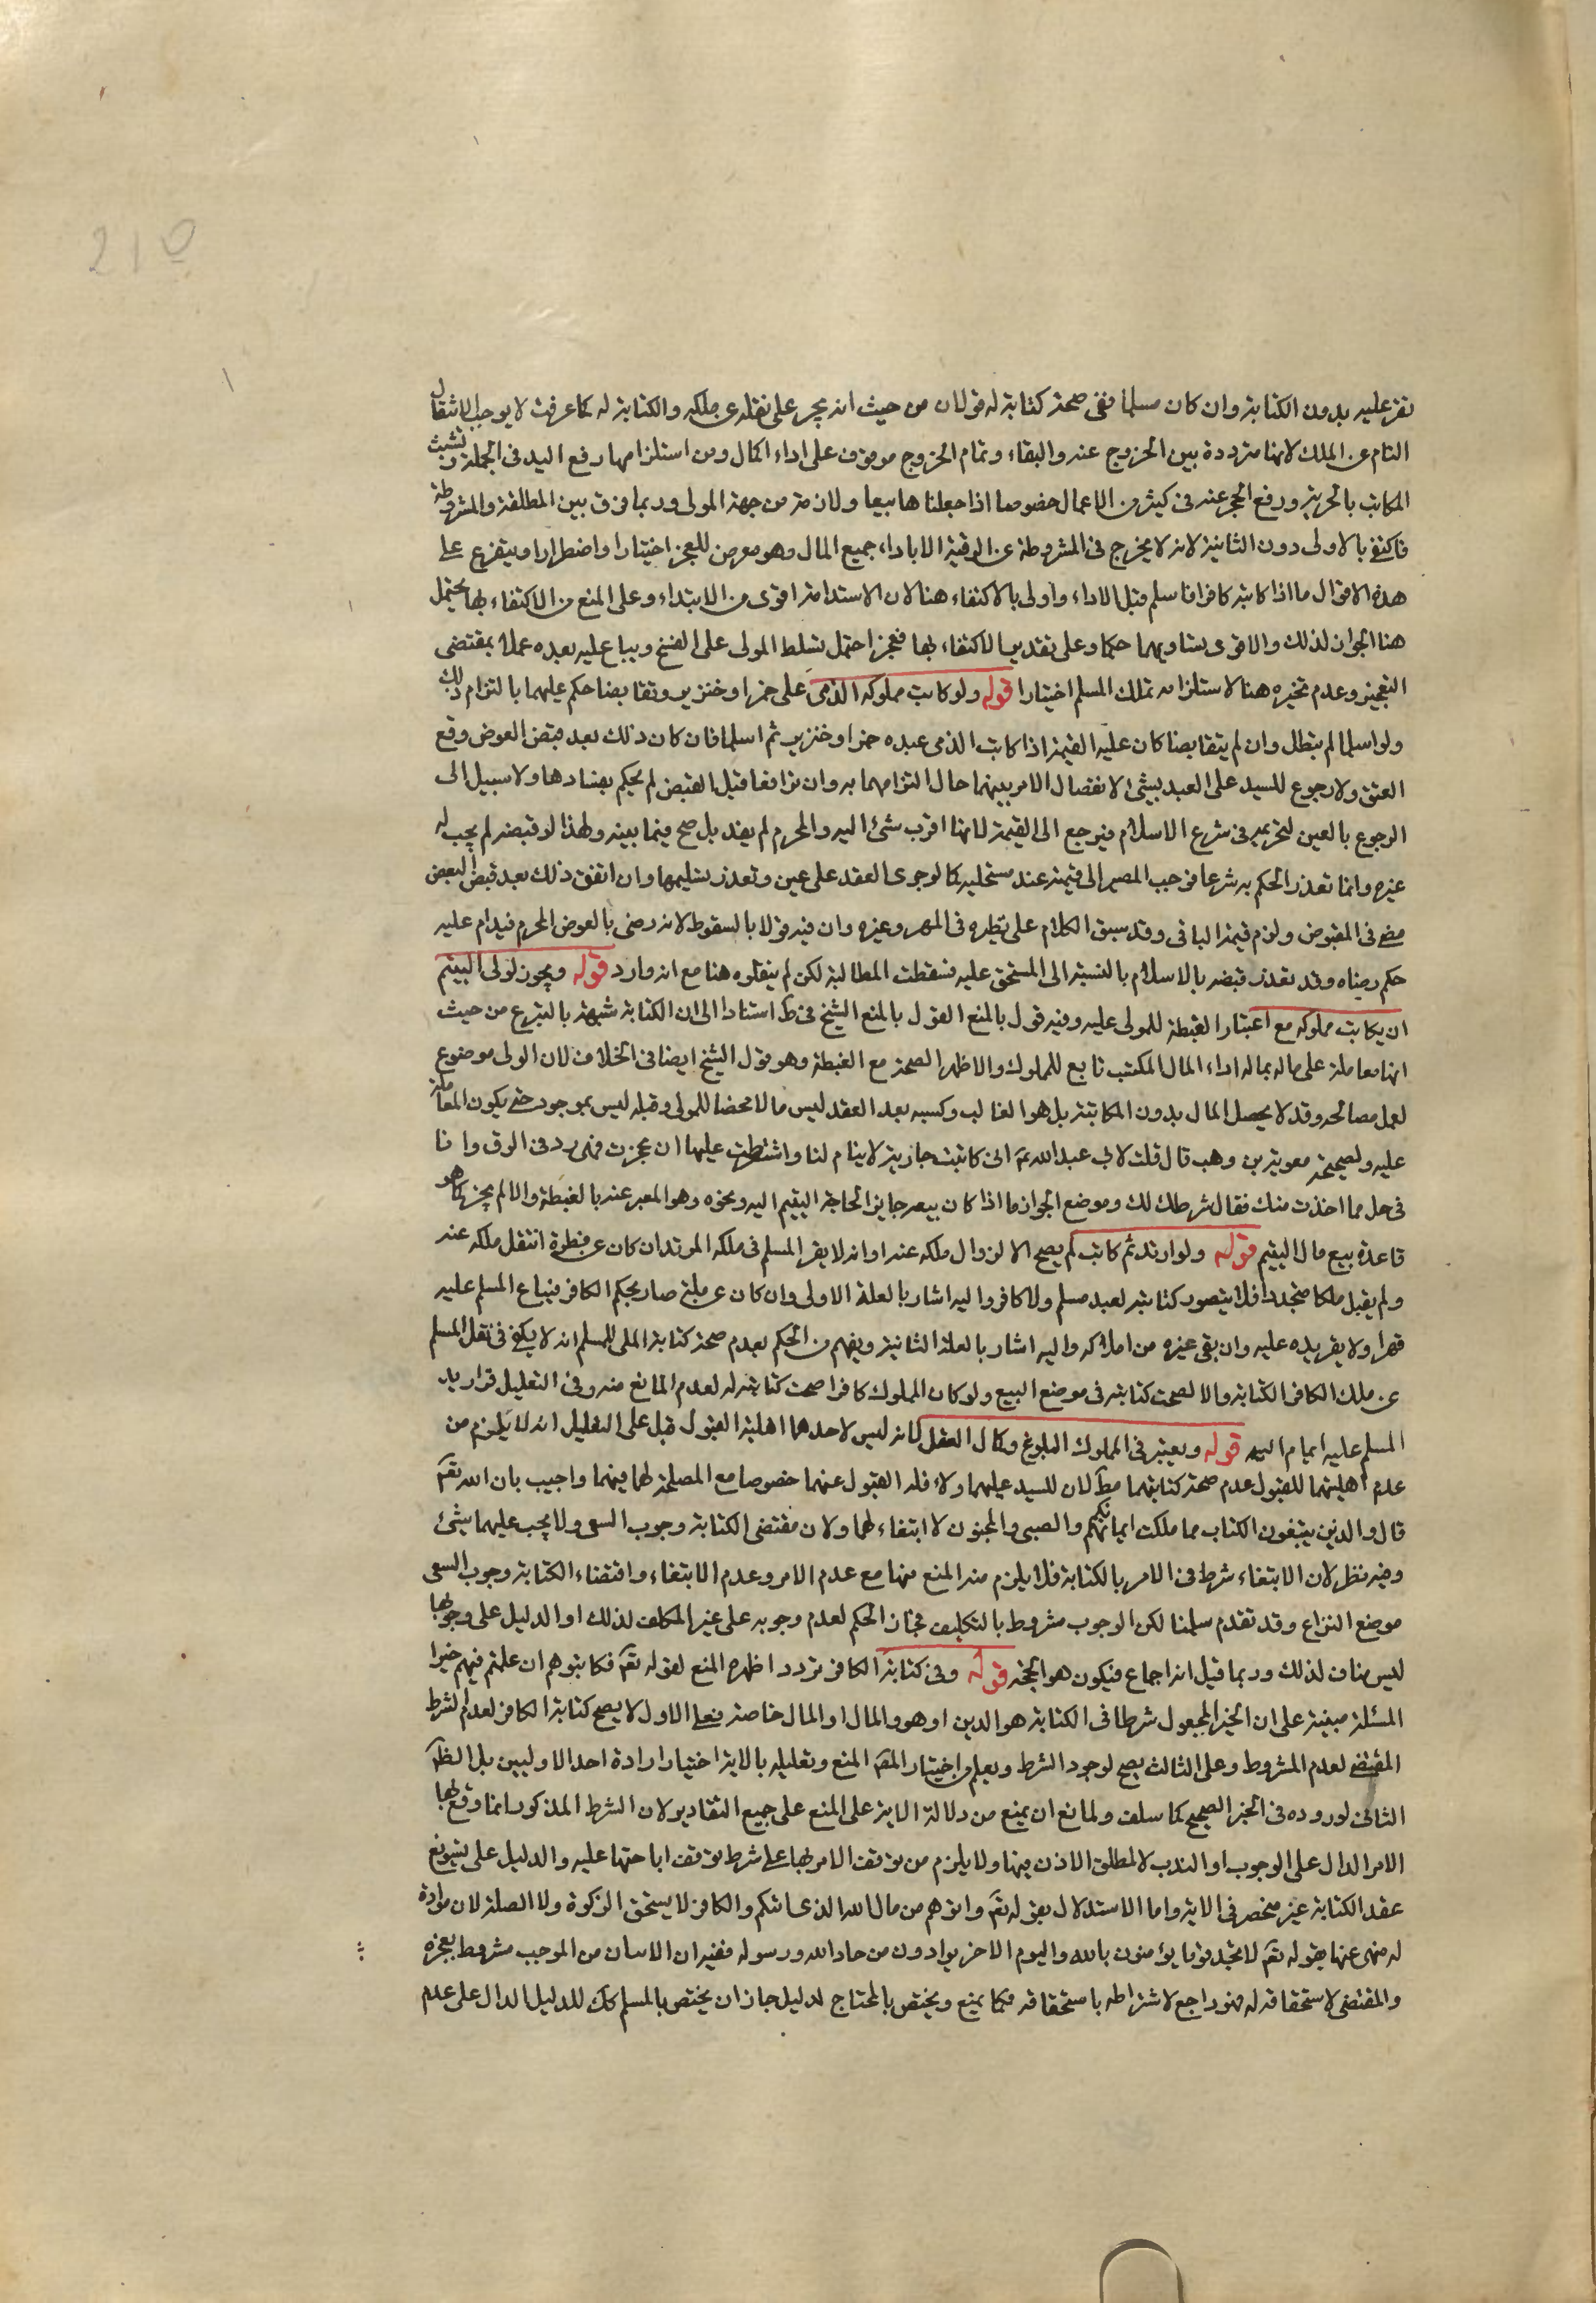 210
تقر عليه بدون الكتابة وان كان مسلما ففى صحة كتابته له قولان من حيث انه يجبر على نقله عن ملكه والكتابة له كما عرفت لا يوجب الانتقال
التام عن الملك لانها مترددة بين الخروج عنه والبقاء وتمام الخروج موقوف على اداء المال ومن استلزامها رفع اليد فى الجملة وتشبث
المكاتب بالحرية ورفع الحجر عنه فى كثير من الاعمال خصوصا اذا جعلناها بيعا ولازمة من جهة المولى وربما فرق بين المطلقة والمشروطة
فاكتفى بالاولى دون الثانية لانه لا يخرج فى المشروطة عن الرقية الا باداء جميع المال وهو معرض للعجز اختيارا واضطرارا ويتفرع على
هذه الاقوال ما اذا كاتب كافرا فاسلم قبل الاداء واولى بالاكتفاء هنا لان الاستدامة اقوى من الابتداء وعلى المنع من الاكتفاء بها يحتمل
هنا الجواز لذلك والاقوى تساويهما حكما وعلى تقدير الاكتفاء بها فعجز احتمل تسلط المولى على الفسخ ويباع عليه بعده عملا بمقتضى
التعجيز وعدم تخيره هنا لاستلزامه تملك المسلم اختيارا قوله ولو كاتب مملوكه الذمى على خمر او خنزير وتقابضا حكم عليهما بالتزام ذلك
ولو اسلما لم يبطل وان لم يتقابضا كان عليه القيمة اذا كاتب الذمى عبده خمرا وخنزير ثم اسلما فان كان ذلك بعد قبض العوض وقع
العتق ولا رجوع للسيد على العبد بشئ لانفصال الامر بينهما حال التزامهما به وان ترافعا قبل القبض لم يحكم بفسادها ولا سبيل الى
الرجوع بالعين لتحريمه فى شرع الاسلام فيرجع الى القيمة لانها اقرب شئ اليه والمحرم لم يفسد بل صح فيما بينه ولهذا لو قبضه لم يجب له
غيره وانما تعذر الحكم به شرعا فوجب المصير الى قيمته عند مستحليه كما لو جرى العقد على عين وتعذر تسليمها وان اتفق ذلك بعد قبض البعض
مضى فى المقبوض ولزم قيمة الباقى وقد سبق الكلام على نظيره فى المهر وغيره وان فيه قولا بالسقوط لانه رضى بالعوض المحرم فيدام عليه
حكم رضاه وقد تعذر قبضه بالاسلام بالنسبة الى المستحق عليه فسقطت المطالبة لكن لم ينقلوه هنا مع انه وارد قوله ويجوز لولى اليتيم
ان يكاتب مملوكه مع اعتبار الغبطة للمولى عليه وفيه قول بالمنع القول بالمنع الشيخ فى ط استنادا الى ان الكتابة شبهة بالتبرع من حيث
انها معاملة على ماله بماله اداء المال المكتسب تابع للمملوك والاظهر الصحة مع الغبطة وهو قول الشيخ ايضا فى الخلاف لان الولى موضوع
لعمل مصالحه وقد لا يحصل المال بدون المكاتبة بل هو الغالب وكسبه بعد العقد ليس مالا محضا للمولى وقبله ليس بموجود حتى يكون المعاملة
عليه ولصحيحة معوية بن وهب قال قلت لابى عبد الله ع انى كاتبت جارية لايتام لنا واشترطت عليها ان عجزت فهى رد فى الرق وانا
فى حل مما اخذت منك فقال شرطك لك وموضع الجواز ما اذا كان بيعه جايزا لحاجة اليتيم اليه ونحوه وهو المعبر عنه بالغبطة والا لم يجز كما هو
قاعدة بيع مال اليتيم قوله ولو ارتد ثم كاتب لم يصح الا لزوال ملكه عنه او انه لا يقر المسلم فى ملكه المرتد ان كان عن فطرة انتقل ملكه عنه
ولم يقبل ملكا متجددا فلا يتصور كتابته لعبد مسلم ولا كافر واليه اشار بالعلة الاولى وان كان عن ملة صار بحكم الكافر فيباع المسلم عليه
قهرا ولا يقر يده عليه وان بقى غيره من املاكه واليه اشار بالعلة الثانية ويفهم من الحكم بعدم صحة كتابة الملى للمسلم انه لا يكفى فى نقل المسلم
عن ملك الكافر الكتابة والا لصحت كتابته فى موضع البيع ولو كان المملوك كافرا صحت كتابته له لعدم المانع منه وفى التعليل قرار يد
المسلم عليه ايماء اليه قوله ويعتبر فى المملوك البلوغ وكمال العقل لانه ليس لاحدهما اهلية القبول قيل على التعليل انه لا يلزم من
عدم اهليتهما للقبول عدم صحة كتابتهما مط لان للسيد عليهما ولاء فله القبول عنهما خصوصا مع المصلحة لهما فيهما واجيب بان الله تعم
قال والذين يبتغون الكتاب مما ملكت ايمانكم والصبى والمجنون لا ابتغاء لهما ولان مقتضى الكتابة وجوب السعى ولا يجب عليهما شئ
وفيه نظر لان الابتغاء شرط فى الامر بالكتابة فلا يلزم منه المنع منها مع عدم الامر وعدم الابتغاء واقتضاء الكتابة وجوب السعى
موضع النزاع وقد تقدم سلمنا لكن الوجوب مشروط بالتكليف فجاز الحكم لعدم وجوبه على غير المكلف لذلك او الدليل على وجوبها
ليس مناف لذلك وربما قيل انه اجماع فيكون هو الحجة قوله وفى كتابة الكافر تردد اظهره المنع لقوله تعم فكاتبوهم ان علمتم فيهم خيرا
المسئلة مبنية على ان الخير المجعول شرطا فى الكتابة هو الدين او هو والمال او المال خاصة فعلى الاول لا يصح كتابة الكافر لعدم الشرط
المقتضى لعدم المشروط وعلى الثالث يصح لوجود الشرط ويعلم من اختيار المص المنع وتعليله بالاية اختيار ارادة احد الاوليين بل الظم
الثانى لوروده فى الخبر الصحيح كما سلف ولمانع ان يمنع من دلالة الاية على المنع على جميع التقادير لان الشرط المذكور انما وقع لها
الامر الدال على الوجوب او الندب لا لمطلق الاذن فيها ولا يلزم من توقف الامر بها على شرط توقف اباحتها عليه والدليل على تسويغ
عقد الكتابة غير منحصر فى الاية واما الاستدلال بقوله تعم واتوهم من مال الله الذى اتيكم والكافر لا يستحق الزكوة ولا الصلة لان موادة
له منهى عنها بقوله تعم لا تجد قوما يؤمنون بالله واليوم الاخر يوادون من حاد الله ورسوله ففيه ان الاتيان من الموجب مشروط بعجزه
والمقتضى لاستحقاقه له فهو راجع لاشتراطه باستحقاقه فكما يمنع ويختص بالمحتاج لدليل جاز ان يختص بالمسلم كك للدليل الدال على عدم